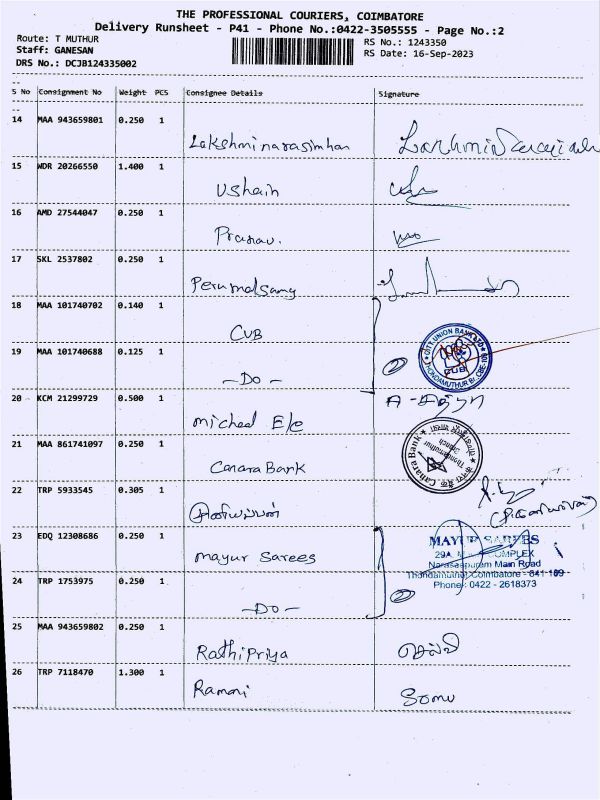 THE PROFESSIONAL COURIERS, COIMBATORE
Delivery Runsheet - P41 - Phone No.:0422-3505555 - Page No.:2
Route: T MUTHUR
RS No.: 1243350
Staff: GANESAN
RS Date: 16-Sep-2023
DRS No.: DCJB124335002
S No Consignment No Weight PCS Consignee Details Signature
14 MAA 943659801 0.250 1
Lakshminarasimhan
15 WDR 20266550 1.400 1
Ushain
16 AMD 27544047 0.250 1
Pranav.
17 SKL 2537802 0.250 1
Perumalsamy
18 MAA 101740702 0.140 1
CUB
19 MAA 101740688 0.125 1
-Do-
2
CITY UNION BANK LTD
CUB
THONDAMUTHUR
20 KCM 21299729 0.500 1
micheal E/c
21 MAA 861741097 0.250 1
Canara Bank
Canara Bank
Thondamuthur
Branch
22 TRP 5933545 0.305 1
23 EDQ 12308686 0.250 1
mayur Sarees
MAYUR SAREES
29A, COMPLEX
Narasapuram Main Road
Thondamuthur Coimbatore - 641 109
Phone : 0422 - 2618373
24 TRP 1753975 0.250 1
-DO-
2
25 MAA 943659802 0.250 1
Rathipriya செல்வி
26 TRP 7118470 1.300 1
Rammi Somu